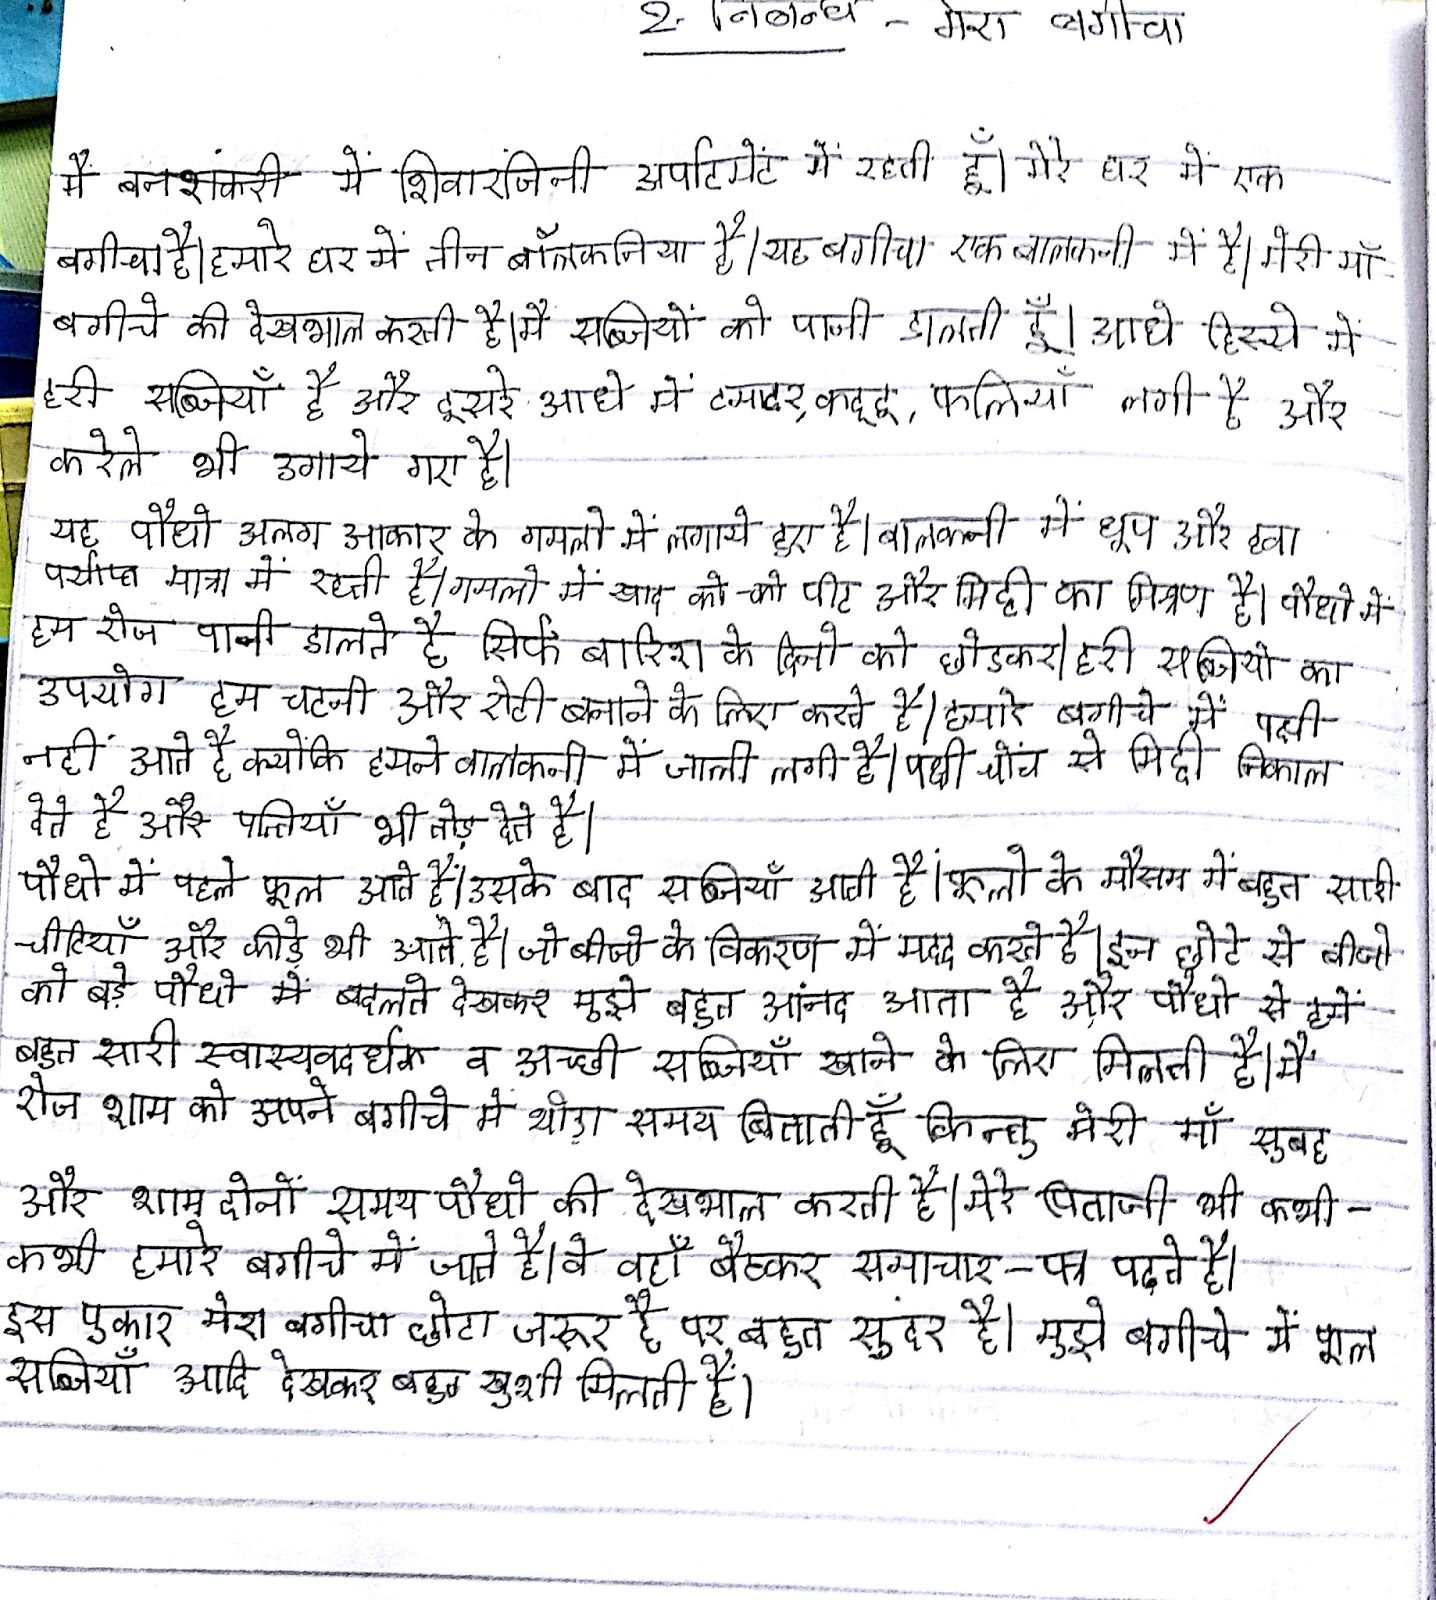 2. निबन्ध - मेरा बगीचा
मै बनशंकरी में शिवारंजिनी अर्पाटमेंट में रहती हूँ। मेरे घर में एक
बगीचा है। हमारे घर में तीन बॉलकनिया है। यह बगीचा एक बालकनी में है। मेरी माँ
बगीचे की देखभाल करती है। मै सब्जियों को पानी डालती हूँ। आधे हिस्से में
हरी सब्जियाँ है और दूसरे आधे में टमाटर, कद्दू, फलियाँ लगी है और
करेले भी उगाये गए है।
यह पौधो अलग आकार के गमलो में लगाये हुए है। बालकनी में धूप और हवा
पर्याप्त मात्रा में रहती है। गमलो में खाद को-को पीट और मिट्टी का मिश्रण है। पौधो में
हम रोज पानी डालते है सिर्फ बारिश के दिनो को छोडकर। हरी सब्जियो का
उपयोग हम चटनी और रोटी बनाने के लिए करते है। हमारे बगीचे में पक्षी
नहीं आते है क्योंकि हमने बालकनी में जाली लगी है। पक्षी चोंच से मिट्टी निकाल
देते है और पत्तियाँ भी तोड़ देते है।
पौधो में पहले फूल आते हैं। उसके बाद सब्जियाँ आती हैं। फूलो के मौसम में बहुत सारी
चीटियाँ और कीड़े भी आते है। जो बीजो के विकरण में मदद करते है। इन छोटे से बीजो
को बड़े पौधो में बदलते देखकर मुझे बहुत आंनद आता है और पौधो से हमें
बहुत सारी स्वास्यवदर्धक व अच्छी सब्जियाँ खाने के लिए मिलती है। मै
रोज शाम को अपने बगीचे में थोड़ा समय बिताती हूँ किन्तु मेरी माँ सुबह
और शाम दोनों समय पौधो की देखभाल करती है। मेरे पिताजी भी कभी-
कभी हमारे बगीचे में जाते है। वे वहाँ बैठकर समाचार-पत्र पढ़ते है।
इस पुकार मेरा बगीचा छोटा जरूर है पर बहुत सुंदर है। मुझे बगीचे में फूल
सब्जियाँ आदि देखकर बहुत खुशी मिलती हैं।